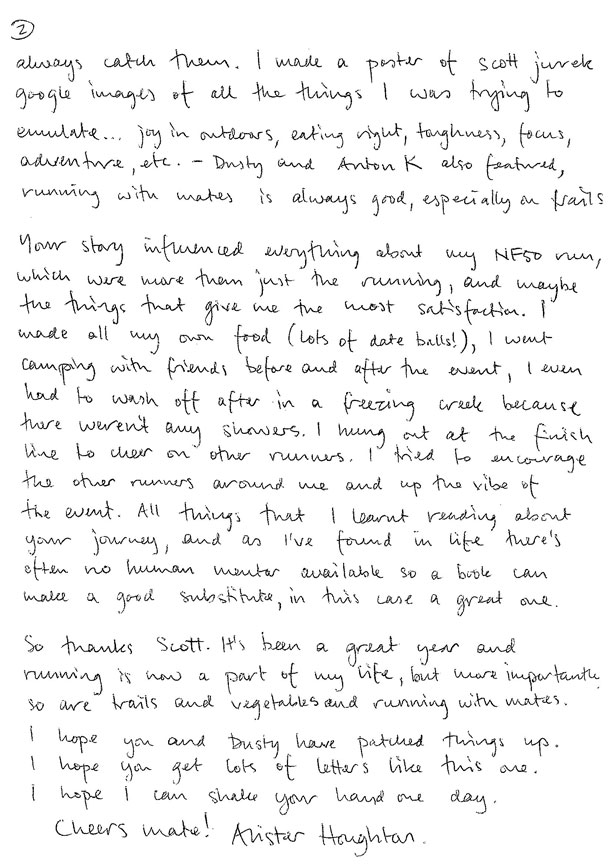 2
always catch them. I made a poster of Scott Jurek
google images of all the things I was trying to
emulate... joy in outdoors, eating right, toughness, focus,
adventure, etc. - Dusty and Anton K also featured,
running with mates is always good, especially on trails
Your story influenced everything about my NF50 run,
which were more them just the running, and maybe
the things that give me the most satisfaction. I
made all my own food (lots of date balls!), I went
camping with friends before and after the event, I even
had to wash off after in a freezing creek because
there weren't any showers. I hung out at the finish
line to cheer on other runners. I tried to encourage
the other runners around me and up the vibe of
the event. All things that I learnt reading about
your journey, and as I've found in life there's
often no human mentor available so a book can
make a good substitute, in this case a great one.
So thanks Scott. It's been a great year and
running is now a part of my life, but more importantly
so are trails and vegetables and running with mates.
I hope you and Dusty have patched things up.
I hope you get lots of letters like this one.
I hope I can shake your hand one day.
Cheers mate! Alister Houghton.